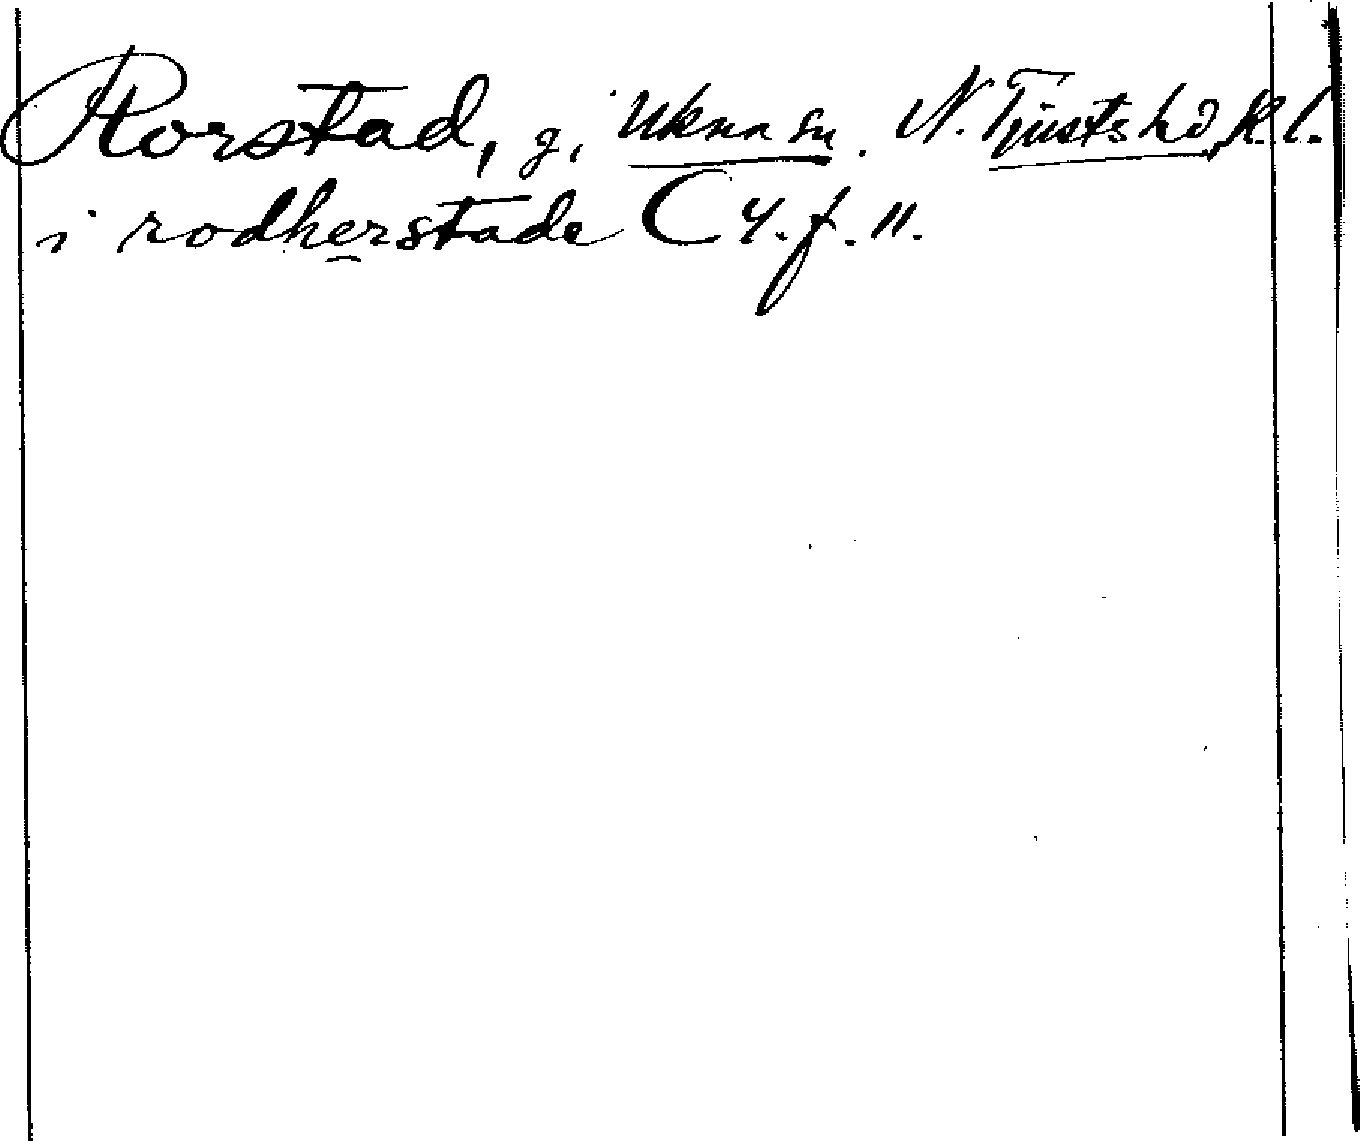 Rorstad, g. Ukna sn. N. Tjusts hd, K. l.
i rodherstade C 4. f. 11.